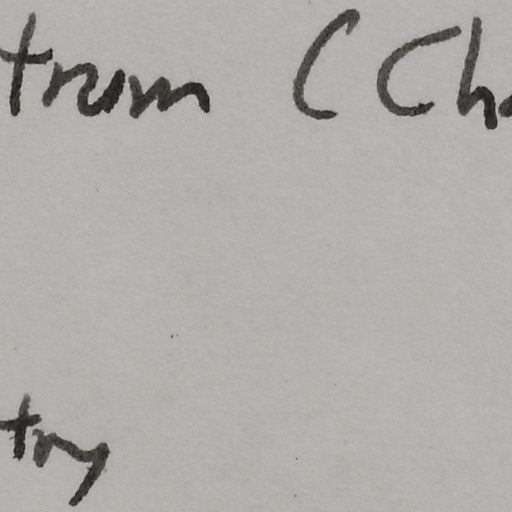 trum (Cha
try